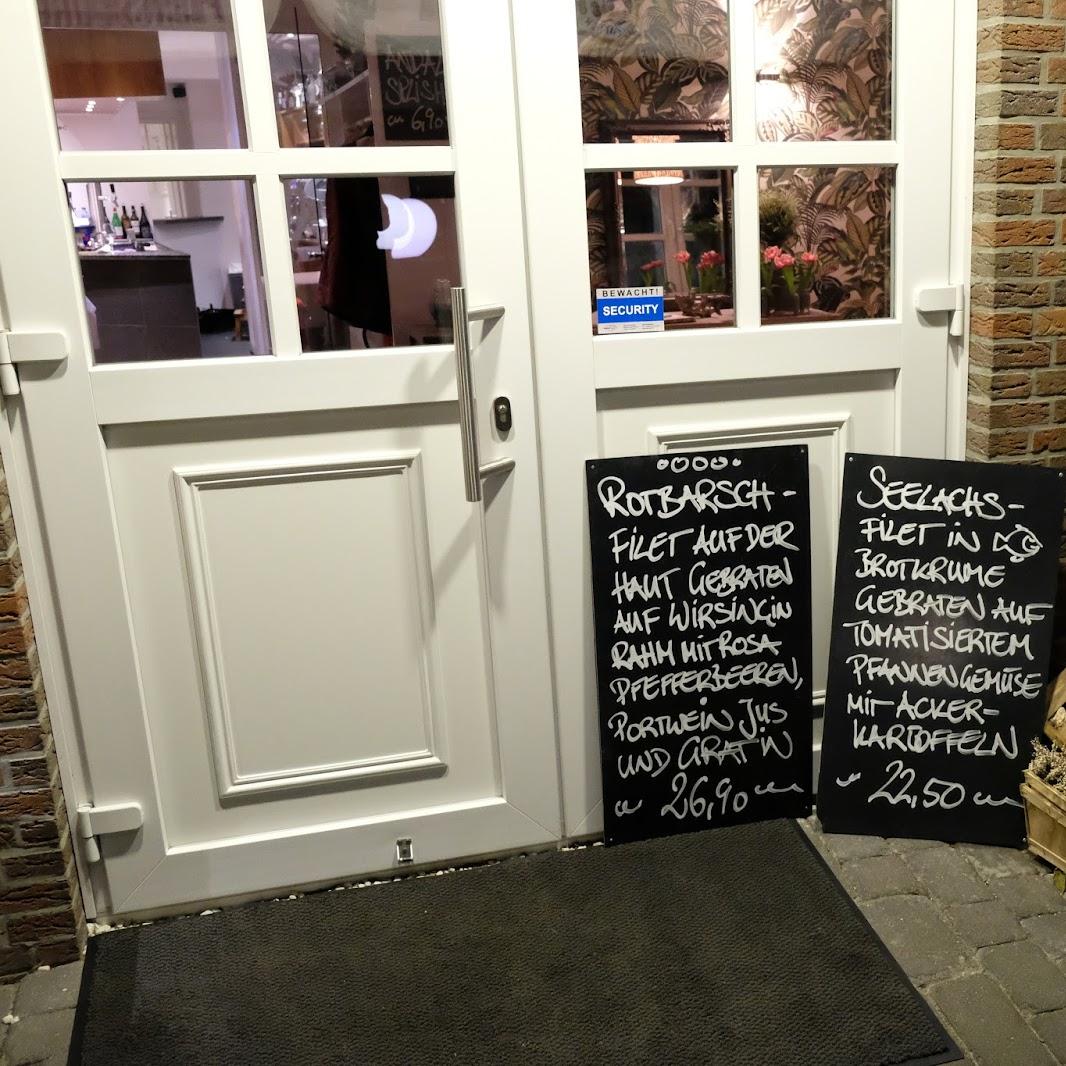 6,90
BEWACHT!
SECURITY
ROTBARSCH-
FILET AUF DER
HAUT GEBRATEN
AUF WIRSING IN
RAHM MIT ROSA
PFEFFERBEEREN,
PORTWEIN JUS
UND GRATIN
26,90
SEELACHS-
FILET IN
BROTKRUME
GEBRATEN AUF
TOMATISIERTEM
PFANNENGEMÜSE
MIT ACKER-
KARTOFFELN
22,50